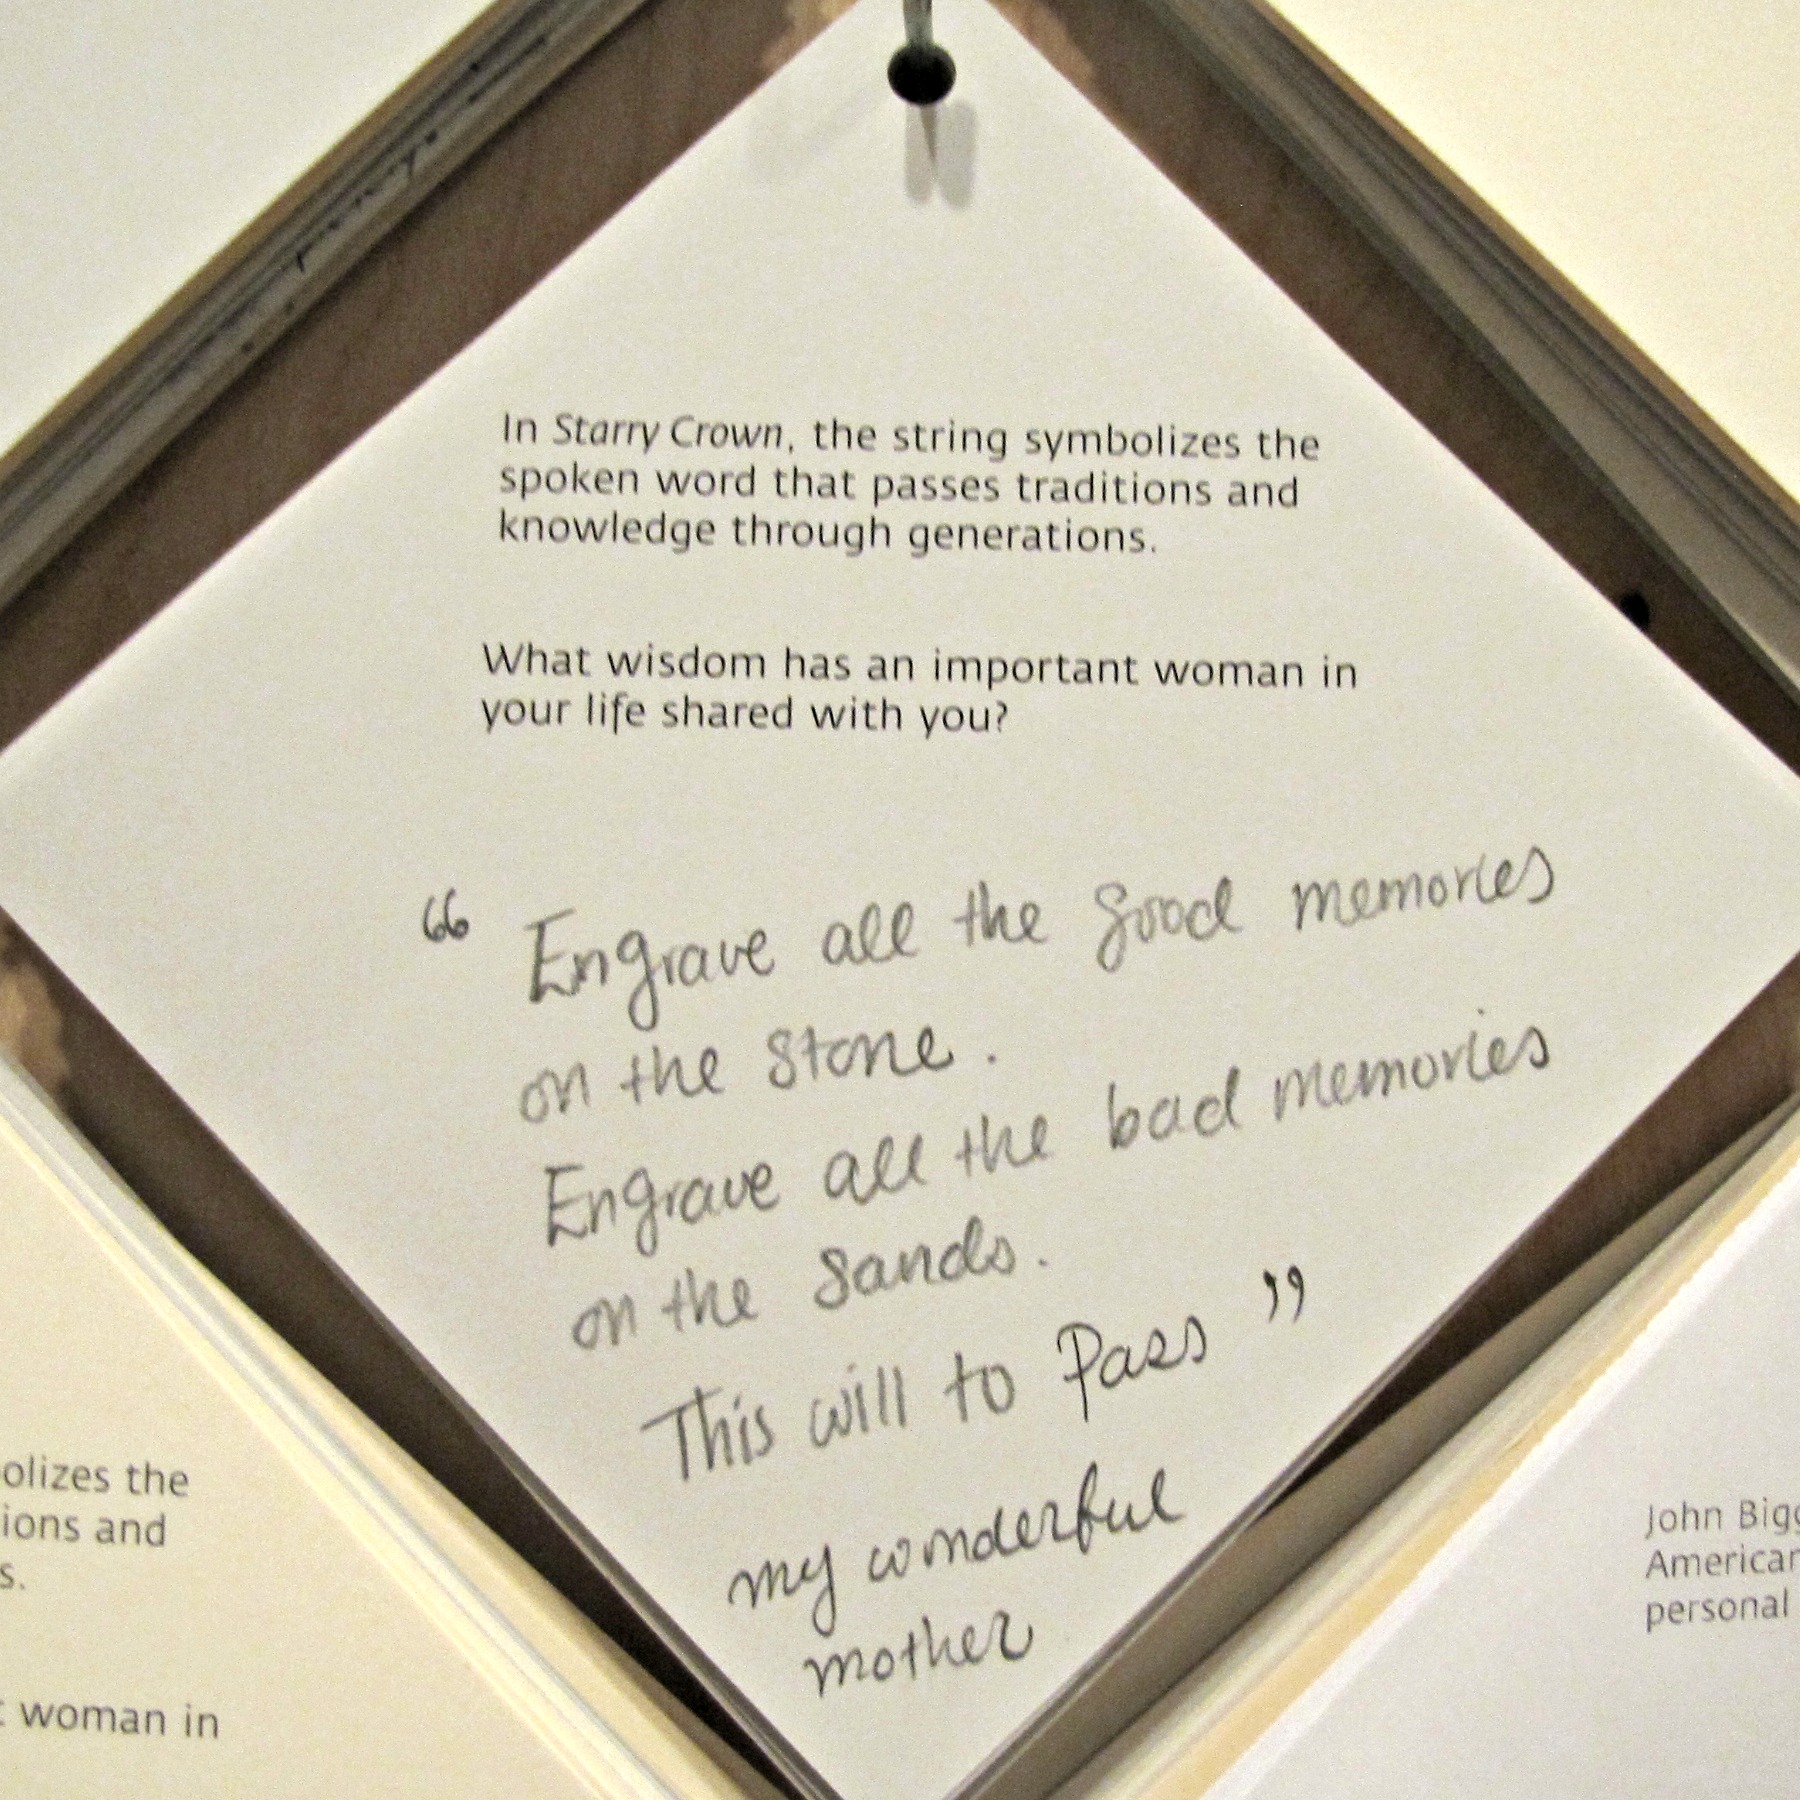 In Starry Crown, the string symbolizes the
spoken word that passes traditions and
knowledge through generations.
What wisdom has an important woman in
your life shared with you?
“ Engrave all the good memories
on the stone.
Engrave all the bad memories
on the sands.
This will to Pass ”
my wonderful
mother
olizes the
ions and
s.
woman in
John Bigg
American
personal